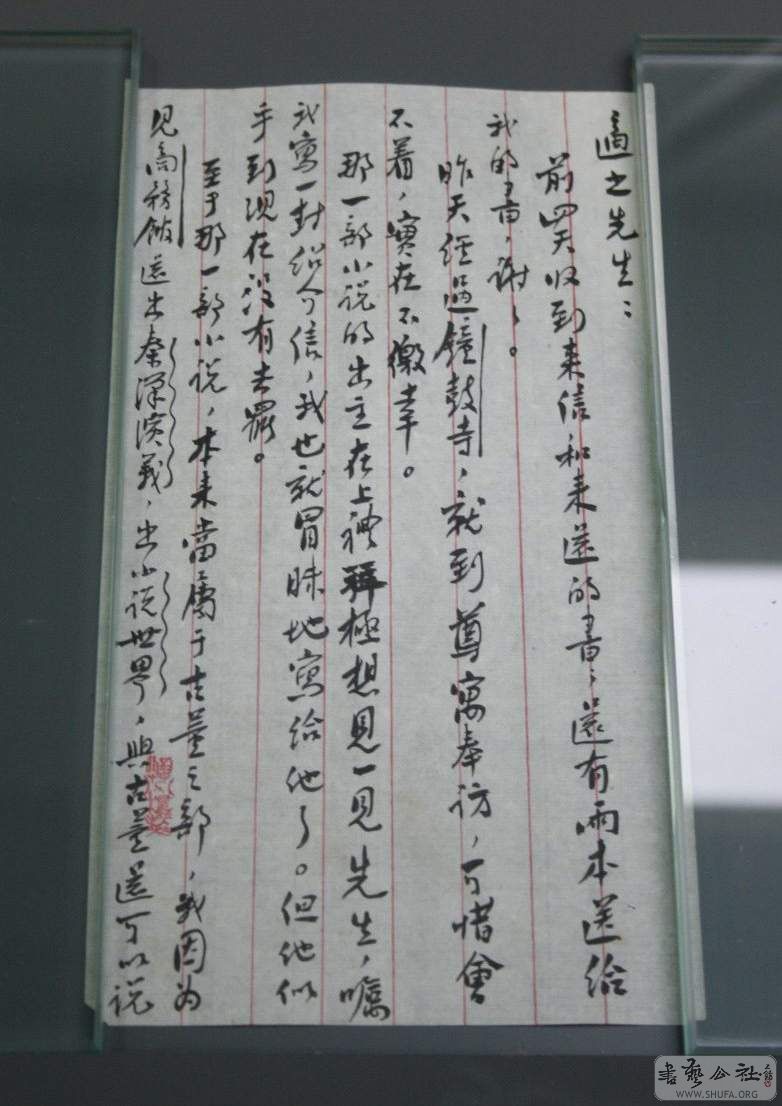 適之先生：
前四天收到来信和来還的書；還有兩本送給
我的書，谢〻。
昨天經過鐘鼓寺，就到尊寓奉訪，可惜會
不着，實在不儌幸。
那一部小说的出主在上禮拜極想見一見先生，嘱
我寫一封绍介信，我也就冒昧地寫给他了。但他似
乎到現在没有去罷。
至于那一部小说，本来當屬于古董之部，我因为
见商務館還出秦漢演義，出小说世界，與古董還可以说
書藝公社
WWW.SHUFA.ORG